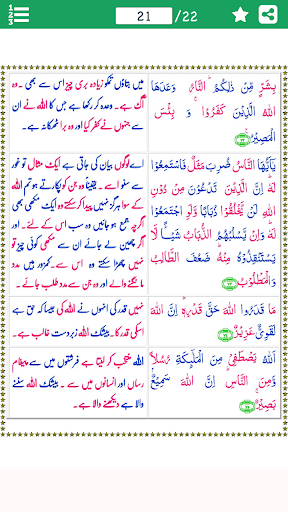 21 /22
بِشَرٍّ مِّنْ ذٰلِكُمْ ؕ اَلنَّارُ ؕ وَعَدَهَا
اللّٰهُ الَّذِيْنَ كَفَرُوْا ؕ وَ بِئْسَ
الْمَصِيْرُ ﴿۷۲﴾
میں بتاؤں تمکو زیادہ بری چیز اس سے بھی ۔ وہ
آگ ہے۔ وعدہ کر رکھا ہے جس کا اللہ نے ان
سے جنہوں نے کفر کیا اور وہ برا ٹھکانہ ہے۔
يٰۤاَيُّهَا النَّاسُ ضُرِبَ مَثَلٌ فَاسْتَمِعُوْا
لَهٗ ؕ اِنَّ الَّذِيْنَ تَدْعُوْنَ مِنْ دُوْنِ
اللّٰهِ لَنْ يَّخْلُقُوْا ذُبَابًا وَّلَوِ اجْتَمَعُوْا
لَهٗ ؕ وَاِنْ يَّسْلُبْهُمُ الذُّبَابُ شَيْـًٔا لَّا
يَسْتَنْقِذُوْهُ مِنْهُ ؕ ضَعُفَ الطَّالِبُ
وَالْمَطْلُوْبُ ﴿۷۳﴾
اے لوگوں بیان کی جاتی ہے ایک مثال تو غور
سے سنو اسے۔ یقیناً وہ جن کو پکارتے ہو تم اللہ
کے سوا ہرگز نہیں پیدا کر سکتے وہ ایک مکھی بھی
اگرچہ جمع ہو جائیں وہ سب اس کے لئے۔ اور
اگر چھین لے جائے ان سے مکھی کوئی چیز تو
نہیں چھڑا سکتے وہ اس سے۔ کمزور ہیں مدد
مانگنے والے اور وہ جن سے مدد طلب جائے۔
مَا قَدَرُوا اللّٰهَ حَقَّ قَدْرِهٖ ؕ اِنَّ اللّٰهَ
لَقَوِيٌّ عَزِيْزٌ ﴿۷۴﴾
نہیں قدر کی انہوں نے اللہ کی جیسا کہ حق ہے
اسکی قدر کا۔ بیشک اللہ زبردست غالب ہے۔
اَللّٰهُ يَصْطَفِيْ مِنَ الْمَلٰٓئِكَةِ رُسُلًا
وَّمِنَ النَّاسِ ؕ اِنَّ اللّٰهَ سَمِيْعٌۢ
بَصِيْرٌ ﴿۷۵﴾
اللہ منتخب کر لیتا ہے فرشتوں میں سے پیغام
رساں اور انسانوں میں سے ۔ بیشک اللہ سننے
والا ہے دیکھنے والا ہے۔